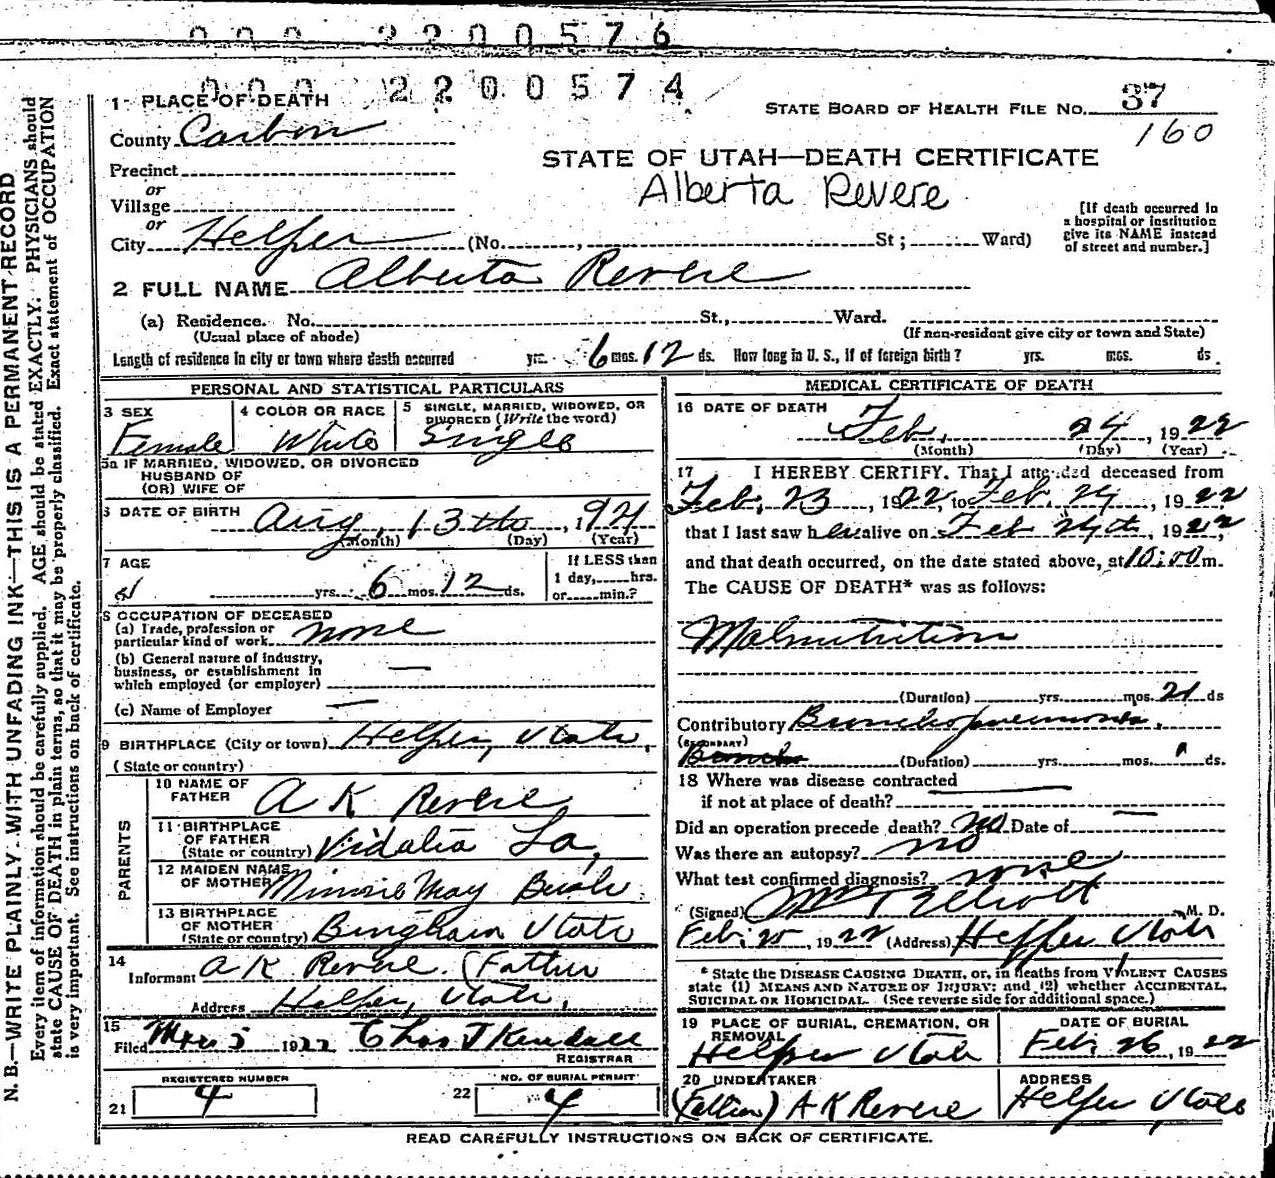 000 2200576
000 2200574
1 PLACE OF DEATH
STATE BOARD OF HEALTH FILE NO. 37
160
County Carbon
STATE OF UTAH—DEATH CERTIFICATE
Precinct
Alberta Revere
or
Village
or
City Helper (No. , St ; Ward)
[If death occurred in
a hospital or institution
give its NAME instead
of street and number.]
2 FULL NAME Alberta Revere
(a) Residence. No. St., Ward.
(Usual place of abode)
(If non-resident give city or town and State)
Length of residence in city or town where death occurred yrs. 6 mos. 12 ds. How long in U. S., if of foreign birth? yrs. mos. ds.
PERSONAL AND STATISTICAL PARTICULARS
3 SEX
Female
4 COLOR OR RACE
White
5 SINGLE, MARRIED, WIDOWED, OR
DIVORCED (Write the word)
Single
5a IF MARRIED, WIDOWED, OR DIVORCED
HUSBAND OF
(OR) WIFE OF
6 DATE OF BIRTH
Aug, 13th, 1921
(Month) (Day) (Year)
7 AGE
yrs. 6 mos. 12 ds.
If LESS than
1 day, hrs.
or min.?
8 OCCUPATION OF DECEASED
(a) Trade, profession or
particular kind of work none
(b) General nature of industry,
business, or establishment in
which employed (or employer) —
(c) Name of Employer —
9 BIRTHPLACE (City or town) Helper, Utah,
(State or country)
PARENTS
10 NAME OF
FATHER A K Revere
11 BIRTHPLACE
OF FATHER
(State or country) Vidalia La,
12 MAIDEN NAME
OF MOTHER Minnie May
13 BIRTHPLACE
OF MOTHER
(State or country) Bingham Utah
14
Informant A K Revere. (Father
Address Helper, Utah,
15
Filed 1922 Thos J Kendall
REGISTRAR
REGISTERED NUMBER
21 4
NO. OF BURIAL PERMIT
22 4
MEDICAL CERTIFICATE OF DEATH
16 DATE OF DEATH
Feb, 24, 1922
(Month) (Day) (Year)
17 I HEREBY CERTIFY, That I attended deceased from
Feb, 23, 1922, to Feb. 24, 1922
that I last saw her alive on Feb 24th, 1922,
and that death occurred, on the date stated above, at 10:00 m.
The CAUSE OF DEATH* was as follows:
Malnutrition
(Duration) yrs. mos. 21 ds
Contributory Bronchopneumonia.
(SECONDARY)
(Duration) yrs. mos. ds.
18 Where was disease contracted
if not at place of death?
Did an operation precede death? no Date of —
Was there an autopsy? no
What test confirmed diagnosis? none
(Signed) Elliott M. D.
Feb. 25, 1922 (Address) Helper Utah
* State the DISEASE CAUSING DEATH, or, in deaths from VIOLENT CAUSES
state (1) MEANS AND NATURE OF INJURY; and (2) whether ACCIDENTAL,
SUICIDAL OR HOMICIDAL. (See reverse side for additional space.)
19 PLACE OF BURIAL, CREMATION, OR
REMOVAL
Helper Utah
DATE OF BURIAL
Feb. 26, 1922
20 UNDERTAKER
(Father) A K Revere
ADDRESS
Helper, Utah
READ CAREFULLY INSTRUCTIONS ON BACK OF CERTIFICATE.
N. B.—WRITE PLAINLY WITH UNFADING INK—THIS IS A PERMANENT RECORD
Every item of information should be carefully supplied. AGE should be stated EXACTLY. PHYSICIANS should
state CAUSE OF DEATH in plain terms, so that it may be properly classified. Exact statement of OCCUPATION
is very important. See instructions on back of certificate.